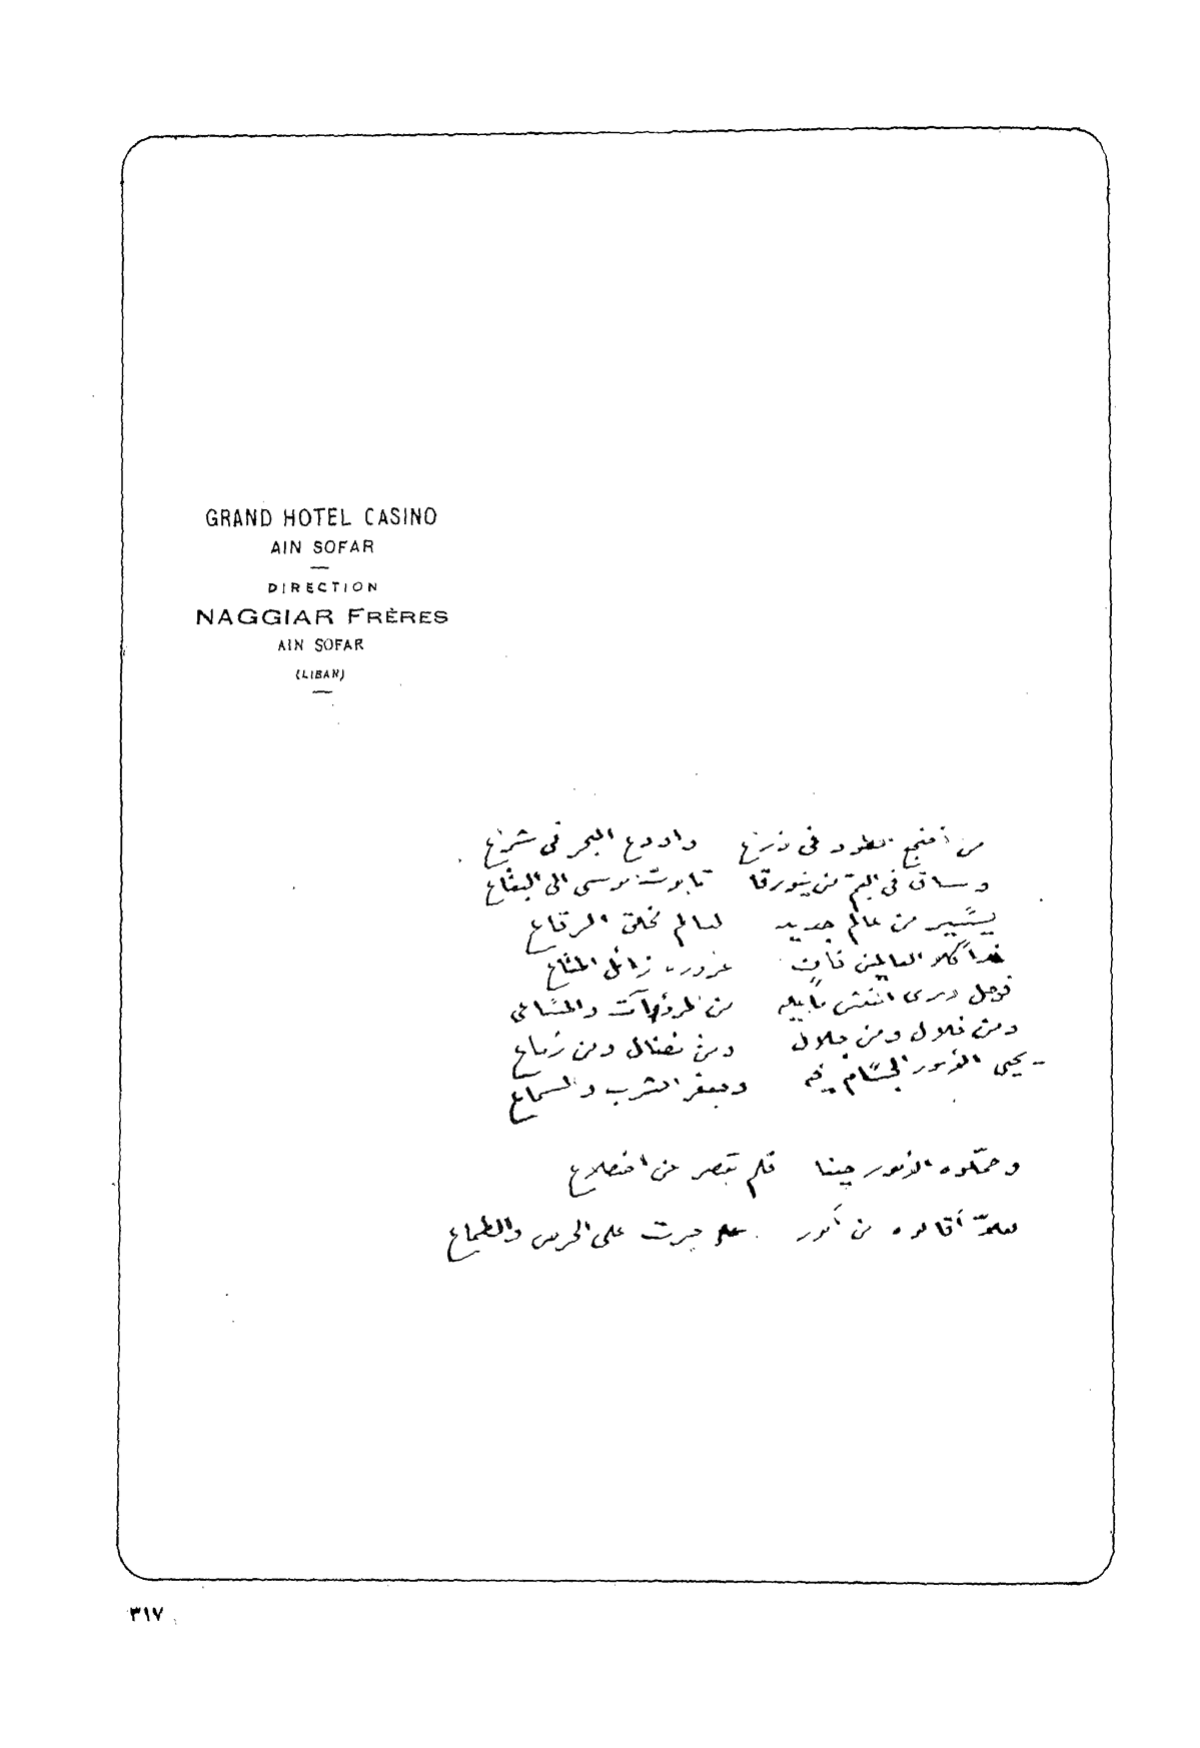 GRAND HOTEL CASINO
AIN SOFAR
DIRECTION
NAGGIAR FRÈRES
AIN SOFAR
(LIBAN)
من الطود في واودع البحر في شراع
وساق في اليم من تابوت موسى الى البقاع
يسير من عالم جديد لعالم مخلق الرقاع
غدا كلا العالمين فان غرور زائل المتاع
من المروءات والمساعي
ومن خلال ومن جلال ومن نضال ومن زماع
يحيى الامور الجسام فيه وجعفر الشرب والسماع
وحملوه الامور حينا فلم يقصر عن اضطلاع
أقالوه من أمور جرت على الحرص والطماع
٣١٧